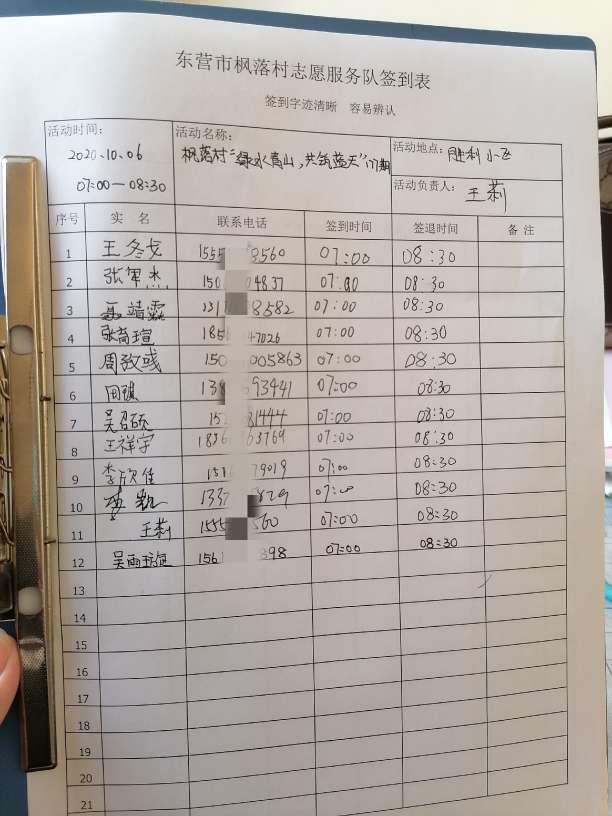 东营市枫落村志愿服务队签到表
签到字迹清晰 容易辨认
活动时间:
2020.10.06
07:00—08:30
活动名称:
枫落村"绿水青山,共筑蓝天"17期
活动地点: 胜利小
活动负责人: 王莉
序号 实 名 联系电话 签到时间 签退时间 备 注
1 王冬 155 8560 07:00 08:30
2 张军杰 150 04837 07:00 08:30
3 靖 131 8582 07:00 08:30
4 张 瑄 185 47026 07:00 08:30
5 周 彧 150 005863 07:00 08:30
6 田 138 93441 07:00 08:30
7 吴召硕 15 81444 07:00 08:30
8 王祥宇 183 63769 07:00 08:30
9 李欣佳 151 79019 07:00 08:30
10 凯 133 829 07:00 08:30
11 王莉 1555 560 07:00 08:30
12 吴雨 156 898 07:00 08:30
13
14
15
16
17
18
19
20
21